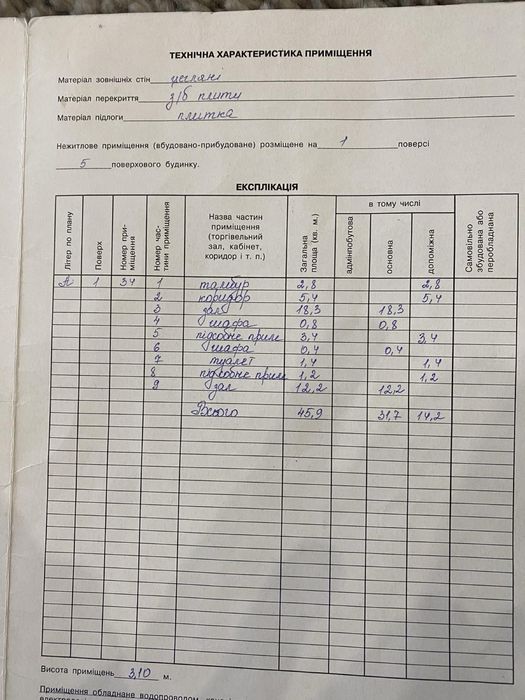 ТЕХНІЧНА ХАРАКТЕРИСТИКА ПРИМІЩЕННЯ
Матеріал зовнішніх стін цегляні
Матеріал перекриття з/б плити
Матеріал підлоги плитка
Нежитлове приміщення (вбудовано-прибудоване) розміщене на 1 поверсі
5 поверхового будинку.
ЕКСПЛІКАЦІЯ
Літер по плану
Поверх
Номер приміщення
Номер частини приміщення
Назва частин приміщення (торгівельний зал, кабінет, коридор і т. п.)
Загальна площа (кв. м.)
в тому числі
адмінпобутова
основна
допоміжна
Самовільно збудована або переобладнана
А 1 34 1 тамбур 2,8 2,8
2 коридор 5,4 5,4
3 зал 18,3 18,3
4 шафа 0,8 0,8
5 підсобне прим 3,4 3,4
6 шафа 0,4 0,4
7 туалет 1,4 1,4
8 підсобне прим 1,2 1,2
9 зал 12,2 12,2
Всього 45,9 31,7 14,2
Висота приміщень 3,10 м.
Приміщення обладнане водопроводом,